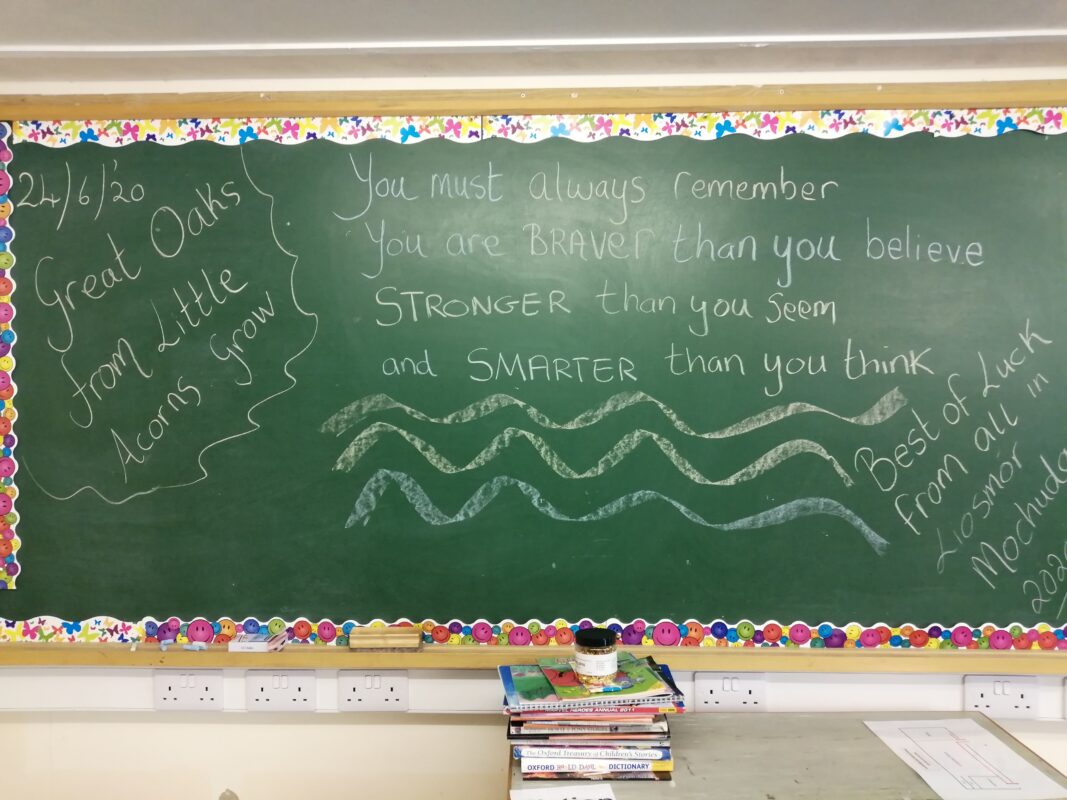 24/6/'20
Great Oaks
from Little
Acorns Grow
You must always remember
You are BRAVER than you believe
STRONGER than you seem
and SMARTER than you think
Best of Luck
from all in
Liosmór
Mochuda
2020
HEROES ANNUAL 2011
The Oxford Treasury of Children's Stories
OXFORD DICTIONARY